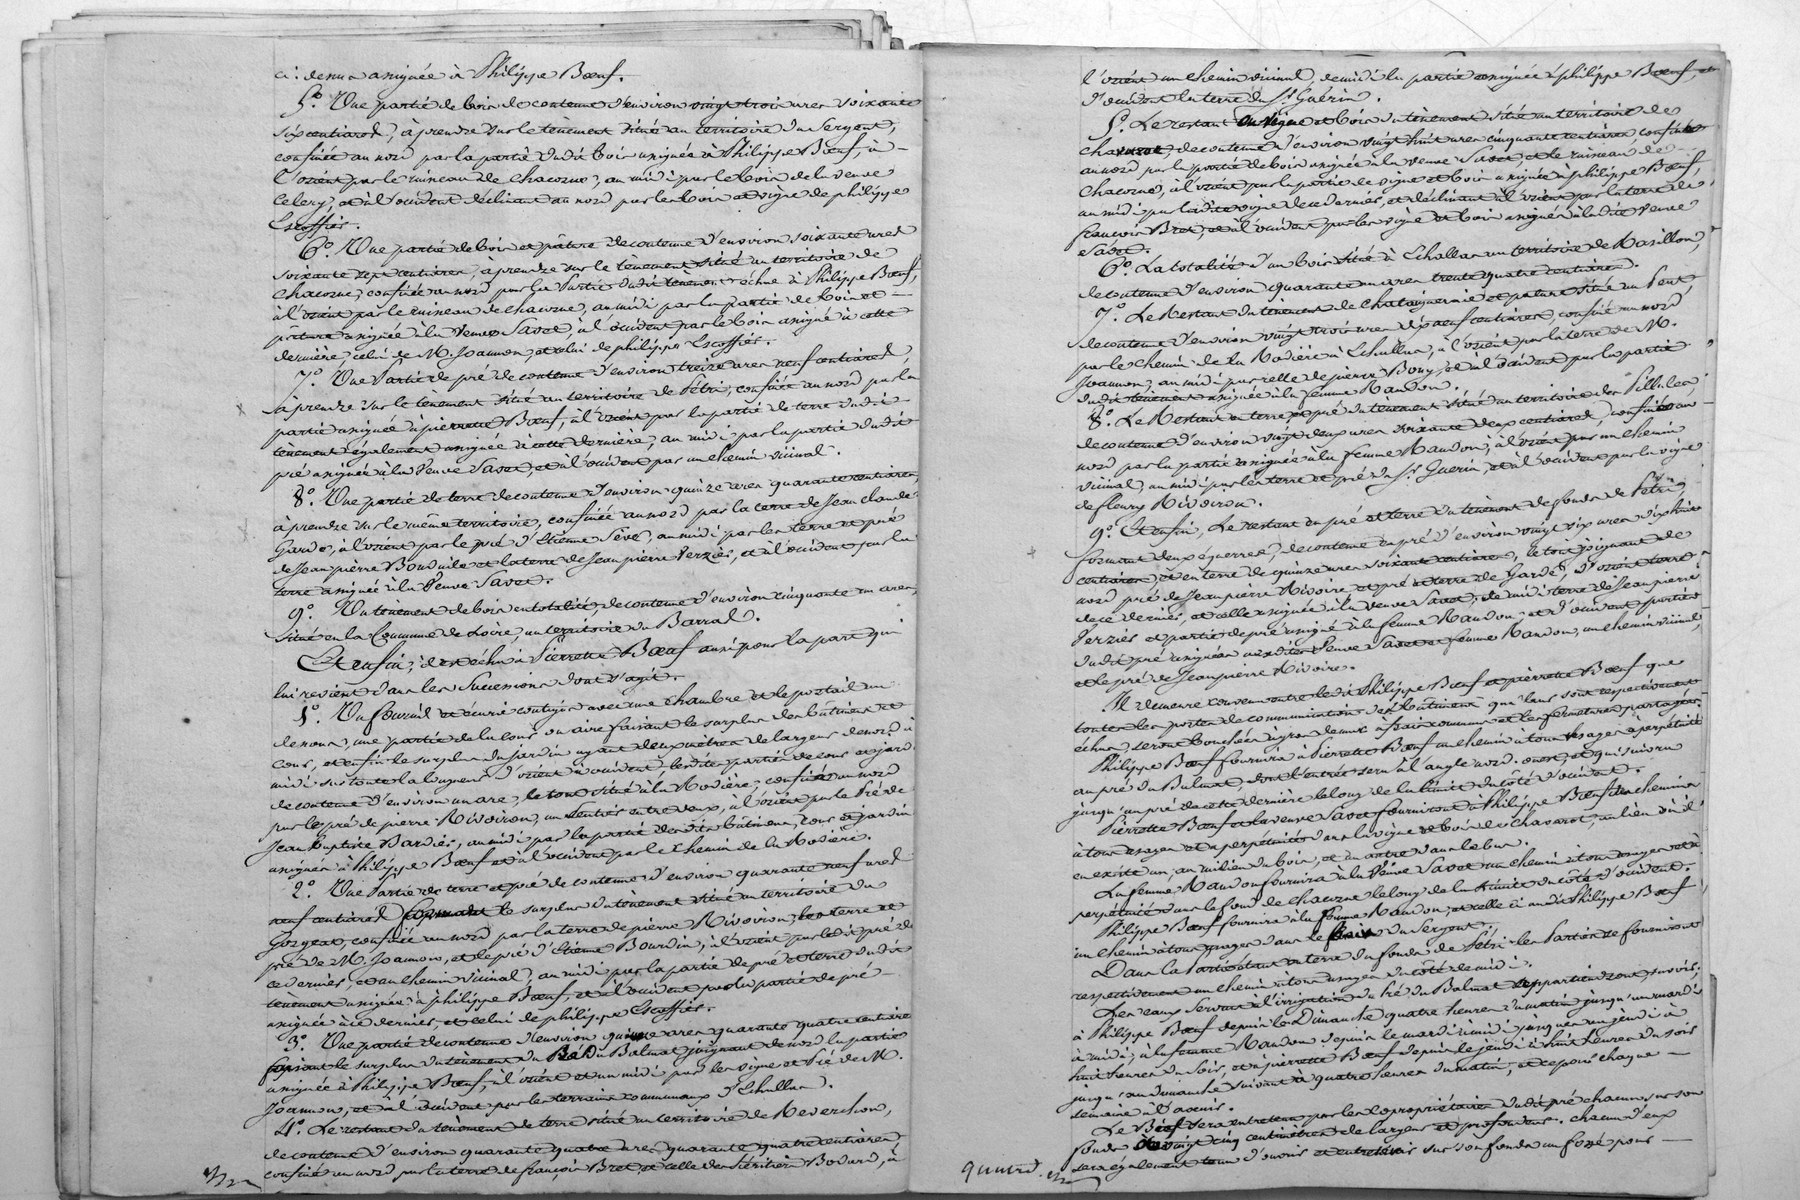 ci-dessus assignée à Philippe Bœuf.
5.° Une partie de bois de contenue d'environ vingt trois ares soixante
six centiares, à prendre sur le tènement situé au territoire du Sergent,
confinée au nord par la partie dudit bois assignée à Philippe Bœuf, à
l'orient par le ruisseau de Chacorne, au midi par le bois de la veuve
Celery, et à l'occident déclinant au nord par les bois et vigne de philippe
Escoffier.
6.° Une partie de bois et pâture de contenue d'environ soixante ares
soixante sept centiares, à prendre sur le tènement situé au territoire de
Chacorne, confinée au nord par la Partie dudit tènement échue à Philippe Bœuf,
à l'orient par le ruisseau de chacorne, au midi par la partie de bois et
pâture assignée à la veuve Savet, à l'occident par le bois assigné à cette
dernière, celui de M. Joannon, et celui de philippe Escoffier.
7.° Une Partie de pré de contenue d'environ treize ares neuf centiares,
à prendre sur le tènement situé au territoire de Pétri, confinée au nord par la
partie assignée à pierrette Bœuf, à l'orient par la partie de terre dudit
tènement également assignée à cette dernière, au midi par la partie dudit
pré assignée à la Veuve Savet, et à l'occident par un chemin vicinal.
8.° Une partie de terre de contenue d'environ quinze ares quarante centiares,
à prendre sur le même territoire, confinée au nord par la terre de Jean claude
Gardo, à l'orient par le pré d'Etienne Sève, au midi par les terre et pré
de Jean pierre Bonduile et la terre de Jean pierre Verziès, et à l'occident par la
terre assignée à la Veuve Savet.
9.° Un tènement de bois en totalité, de contenue d'environ cinquante un ares,
situé en la Commune de Loire, au territoire du Barral.
Et enfin, il est échu à Pierrette Bœuf aussi pour la part qui
lui revient dans les Successions dont s'agit.
1.° Un fournil et écurie contigus avec une chambre et le portail au
dessous, une partie de la cour ou aire faisant le surplus des bâtiments et
cour, et enfin le surplus du jardin ayant deux mètres de largeur de nord à
midi sur toute la longueur d'orient à occident, lesdites parties de cour et jardin
de contenue d'environ un are, le tout situé à la Rodière, confinés au nord
par le pré de pierre Rivoiron, un sentier entre deux, à l'orient par le Pré de
Jean Baptiste Bardiès, au midi par la partie des dits bâtiment, cour et jardin
assignée à Philippe Bœuf et à l'occident par le chemin de la Rodière.
2.° Une Partie de terre et pré de contenue d'environ quarante neuf ares
neuf centiares formant le surplus du tènement situé au territoire du
Gorgeat, confinée au nord par la terre de pierre Rivoiron, les terre et
pré de M. Joannon, et le pré d'Etienne Bourdin, à l'orient par ledit pré de
ce dernier, et un chemin vicinal, au midi par la partie de pré et terre dudit
tènement assignée à philippe Bœuf, et à l'occident par la partie de pré
assignée à ce dernier, et celui de philippe Escoffier.
3.° Une partie de contenue d'environ quinze ares quarante quatre centiares
faisant le surplus du tènement du Pré du Balmat joignant de nord la partie
assignée à Philippe Bœuf, à l'orient et au midi par les vigne et Pré de M.
Joannon, et à l'occident par les terrains communaux d'Echallas.
4.° Le restant du tènement de terre situé au territoire de Reverchon,
de contenue d'environ quarante quatre ares quarante quatre centiares
confiné au nord par la terre de françois Bret, et celle des héritiers Bodard, à
l'orient un chemin vicinal, de midi la partie assignée à philippe Bœuf et
d'occident la terre du S.r Guérin.
5.° Le restant en vigne et bois du tènement situé au territoire de
chavarot, de contenue d'environ vingt huit ares cinquante centiares, confiné
au nord par la partie de bois assignée à la veuve Savet, et le ruisseau de
Chacorne, à l'orient par la partie de vigne et bois assignée à philippe Bœuf,
au midi par ladite vigne de ce dernier, et déclinant à l'orient par la terre de
françois Bret, et à l'occident par les vigne et bois assignés à ladite veuve
Savet.
6.° La totalité d'un bois situé à Echallas au territoire de Rasillon,
de contenue d'environ quarante un ares trente quatre centiares.
7.° Le Restant du tènement de chataigneraie et pature situé au Pent,
de contenue d'environ vingt trois ares dix neuf centiares, confiné au nord
par le chemin de la Rodière à Echallas, à l'orient par la terre de M.
Joannon, au midi par celle de pierre Bouy, et à l'occident par la partie
dudit tènement assignée à la femme Naudon.
8.° Le Restant en terre et pré du tènement situé au territoire des Pillules,
de contenue d'environ vingt deux ares soixante deux centiares, confiné au
nord par la partie assignée à la femme Naudon, à l'orient par un chemin
vicinal, au midi par les terre et pré du S.r Guérin, et à l'occident par la vigne
de fleury Rivoiron.
9.° Et enfin, Le restant en pré et terre du tènement de fonds de Pétri
formant deux équerres, de contenue en pré d'environ vingt six ares dix huit
centiares, et en terre de quinze ares soixante centiares, le tout joignant de
nord pré de Jean pierre Rivoire et pré et terre de Gardo, d'orient terre
de ce dernier, et celle assignée à la veuve Savet, de midi terre de Jean pierre
Verziès et partie de pré assigné à la femme Naudon, et d'occident parties
dudit pré assignées auxdites Veuve Savet et femme Naudon, un chemin vicinal,
et le pré de Jean pierre Rivoire.
Il demeure convenu entre lesdits Philippe Bœuf et pierrette Bœuf que
toutes les portes de communication des bâtiments qui leur sont respectivement
échus, seront bouchées en gros de murs à frais communs et les fermetures partagées.
Philippe Bœuf fournira à Pierrette Bœuf un chemin à tous usages à perpétuité
au pré du Balmat, dont l'entrée sera à l'angle nord-ouest, et qui suivra
jusqu'au pré de cette dernière le long de la limite du côté d'occident.
Pierrette Bœuf et la veuve Savet fourniront à Philippe Bœuf des chemins
à tous usages et à perpétuité dans la vigne et bois de chavarot, au lieu où il
en existe un, au milieu du bois, et un autre dans le bas.
La femme Naudon fournira à la Veuve Savet un chemin à tous usages et à
perpétuité dans le fond de chacorne le long de la limite du côté d'occident.
Philippe Bœuf fournira à la femme Naudon, et celle ci audit Philippe Bœuf
un chemin à tous usages dans le bois du Sergent.
Dans la Partie étant en terre du fonds de Pétri les Parties se fourniront
respectivement un chemin à tous usages du côté de midi.
Les eaux servant à l'irrigation du Pré du Balmat appartiendront, savoir:
à Philippe Bœuf depuis le Dimanche quatre heures du matin jusqu'au mardi
à midi; à la femme Naudon depuis le mardi à midi jusqu'au jeudi à
huit heures du soir, et à pierrette Bœuf depuis le jeudi à huit heures du soir
jusqu'au dimanche suivant à quatre heures du matin, et ce pour chaque
semaine à l'avenir.
Le Bief sera entretenu par les copropriétaires dudit pré chacun sur son
fonds de vingt cinq centimètres de largeur et profondeur. chacun d'eux
sera également tenu d'ouvrir et entretenir sur son fonds un fossé pour